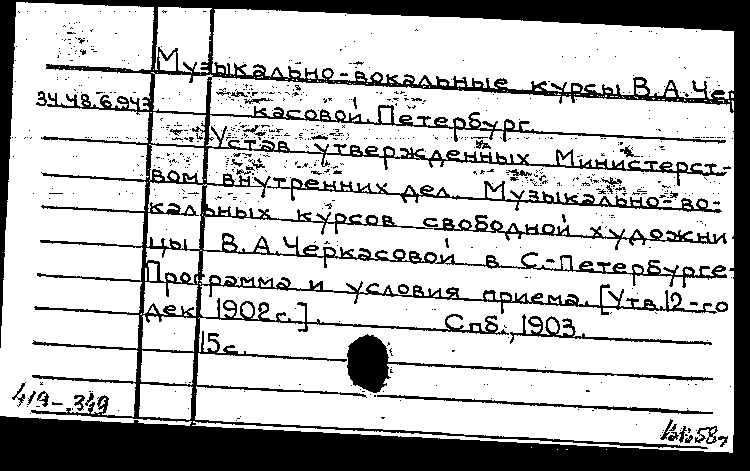 Музыкально-вокальные курсы В.А.Чер
34.48.6.943
касовой. Петербург.
Устав утвержденных Министерст-
вом внутренних дел. Музыкально-во-
кальных курсов свободной художни-
цы В.А.Черкасовой в С.-Петербурге.
Программа и условия приема. [Утв. 12-го
дек. 1902г.]. Спб., 1903.
15с.
419-349